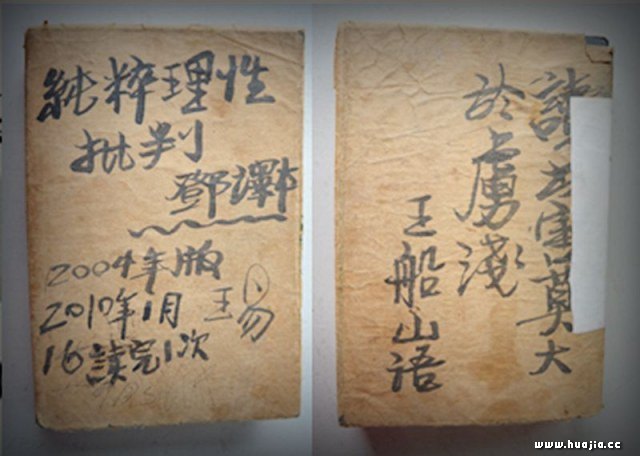 純粹理性
批判
鄧譯本
2004年版
2010年1月
16讀完1次
讀害莫大
於膚淺
王船山语
www.huajia.cc